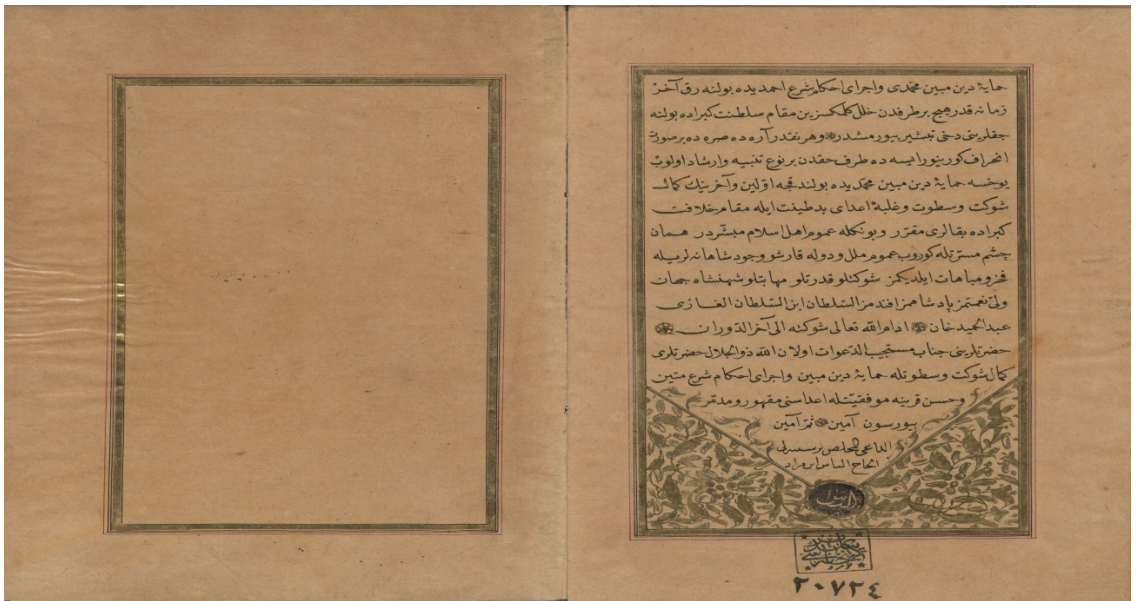 حمایهٔ دین مبین محمدی و اجرای احکام شرع احمدیده بولنه رق آخر
زمانه قدر هیچ بر طرفدن خلل کلمکسزین مقام سلطنت کبراده بولنه
جقلرینی دخی تبشیر بیورمشدر وهر نقدر آره ده صره ده بر صورت
انحراف کورینور ایسه ده طرف حقدن بر نوع تنبیه و ارشاد اولوب
یوخسه حمایهٔ دین مبین محمدیده بولندقجه اوّلین و آخرینك کمال
شوکت وسطوت و غلبهٔ اعدای بدطینت ایله مقام خلافت
کبراده بقالری مقرّر و بونکله عموم اهل اسلام مبشّردر همان
چشم مسرتله کوروب عموم ملل و دوله قارشو وجود شاهانه لریله
فخر و مباهات ایلدیکمز شوکتلو قدرتلو مهابتلو شهنشاه جهان
ولی نعمتمز پادشاهمز افندمز السلطان ابن السلطان الغازی
عبد الحمید خان ادام الله تعالی شوکته الی آخر الدوران
حضرتلرینی جناب مستجیب الدعوات اولان الله ذو الجلال حضرتلری
کمال شوکت وسطوتله حمایهٔ دین مبین و اجرای احکام شرع متین
وحسن قرینه موفقیتله اعداسنی مقهور و مدمّر
بیورسون آمین ثم آمین
الداعی المخلص
الحاج الیاس ابن مراد
٢٠٧٢٤